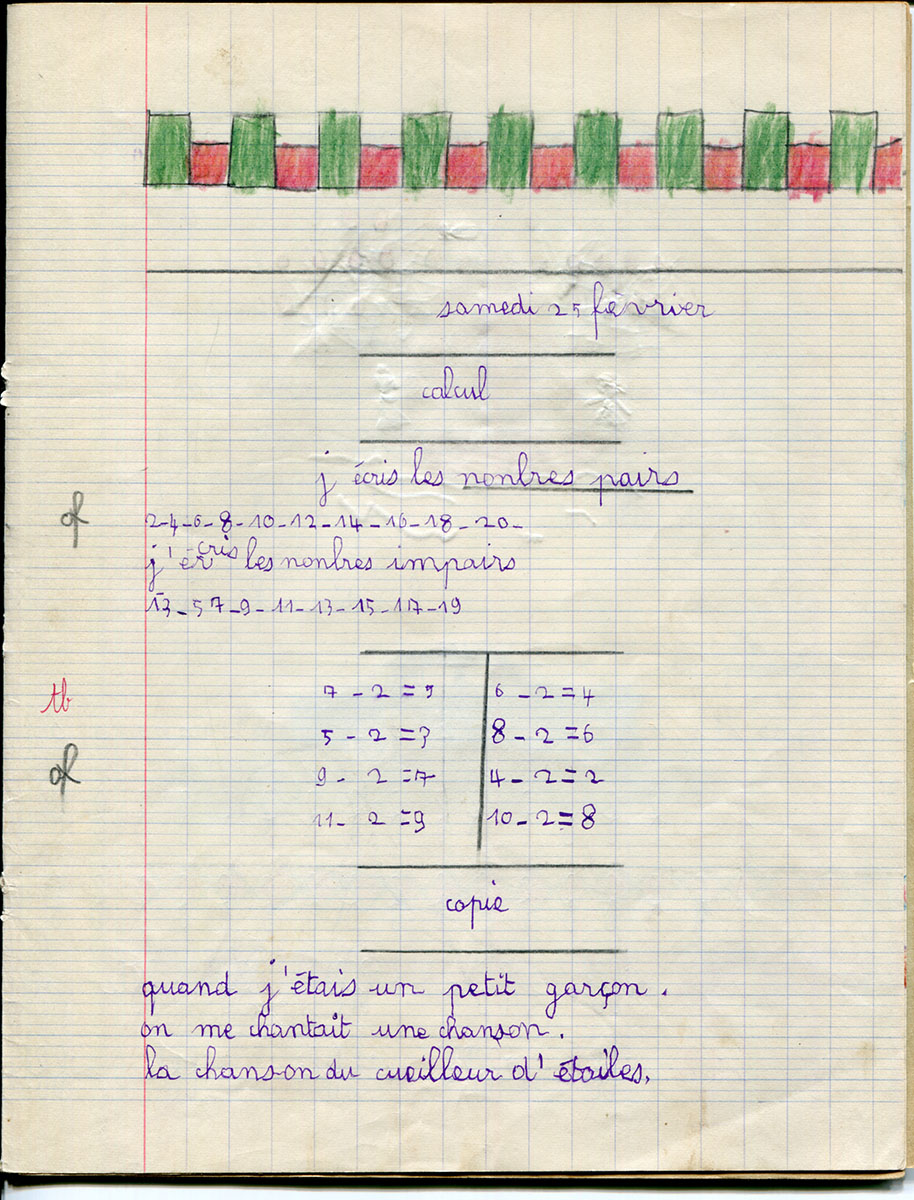 samedi 25 février
calcul
j écris les nonbres pairs
2-4-6-8-10-12-14-16-18-20-
j'écris les nonbres impairs
13-57-9-11-13-15-17-19
7-2=5 6-2=4
tb
5-2=3 8-2=6
9-2=7 4-2=2
11-2=9 10-2=8
copie
quand j'étais un petit garçon.
on me chantait une chanson.
la chanson du cueilleur d'étoiles.